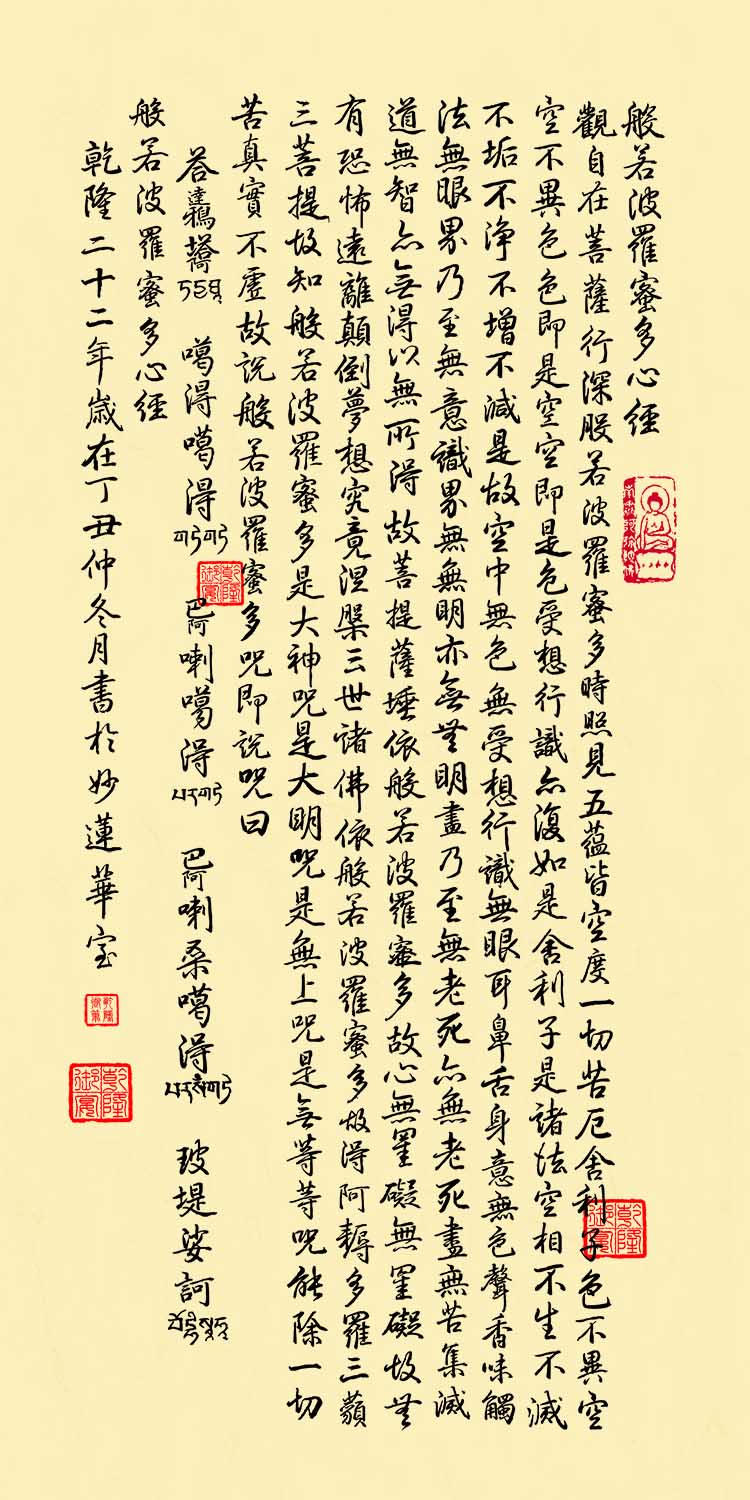 般若波羅蜜多心經
觀自在菩薩行深般若波羅蜜多時照見五蘊皆空度一切苦厄舍利子色不異空
空不異色色即是空空即是色受想行識亦復如是舍利子是諸法空相不生不滅
不垢不淨不增不減是故空中無色無受想行識無眼耳鼻舌身意無色聲香味觸
法無眼界乃至無意識界無無明亦無無明盡乃至無老死亦無老死盡無苦集滅
道無智亦無得以無所得故菩提薩埵依般若波羅蜜多故心無罣礙無罣礙故無
有恐怖遠離顛倒夢想究竟涅槃三世諸佛依般若波羅蜜多故得阿耨多羅三藐
三菩提故知般若波羅蜜多是大神咒是大明咒是無上咒是無等等咒能除一切
苦真實不虛故說般若波羅蜜多咒即說咒曰
答達鴉塔 噶得噶得 巴阿喇噶得 巴阿喇桑噶得 玻堤娑訶
般若波羅蜜多心經
乾隆二十二年歲在丁丑仲冬月書於妙蓮華室